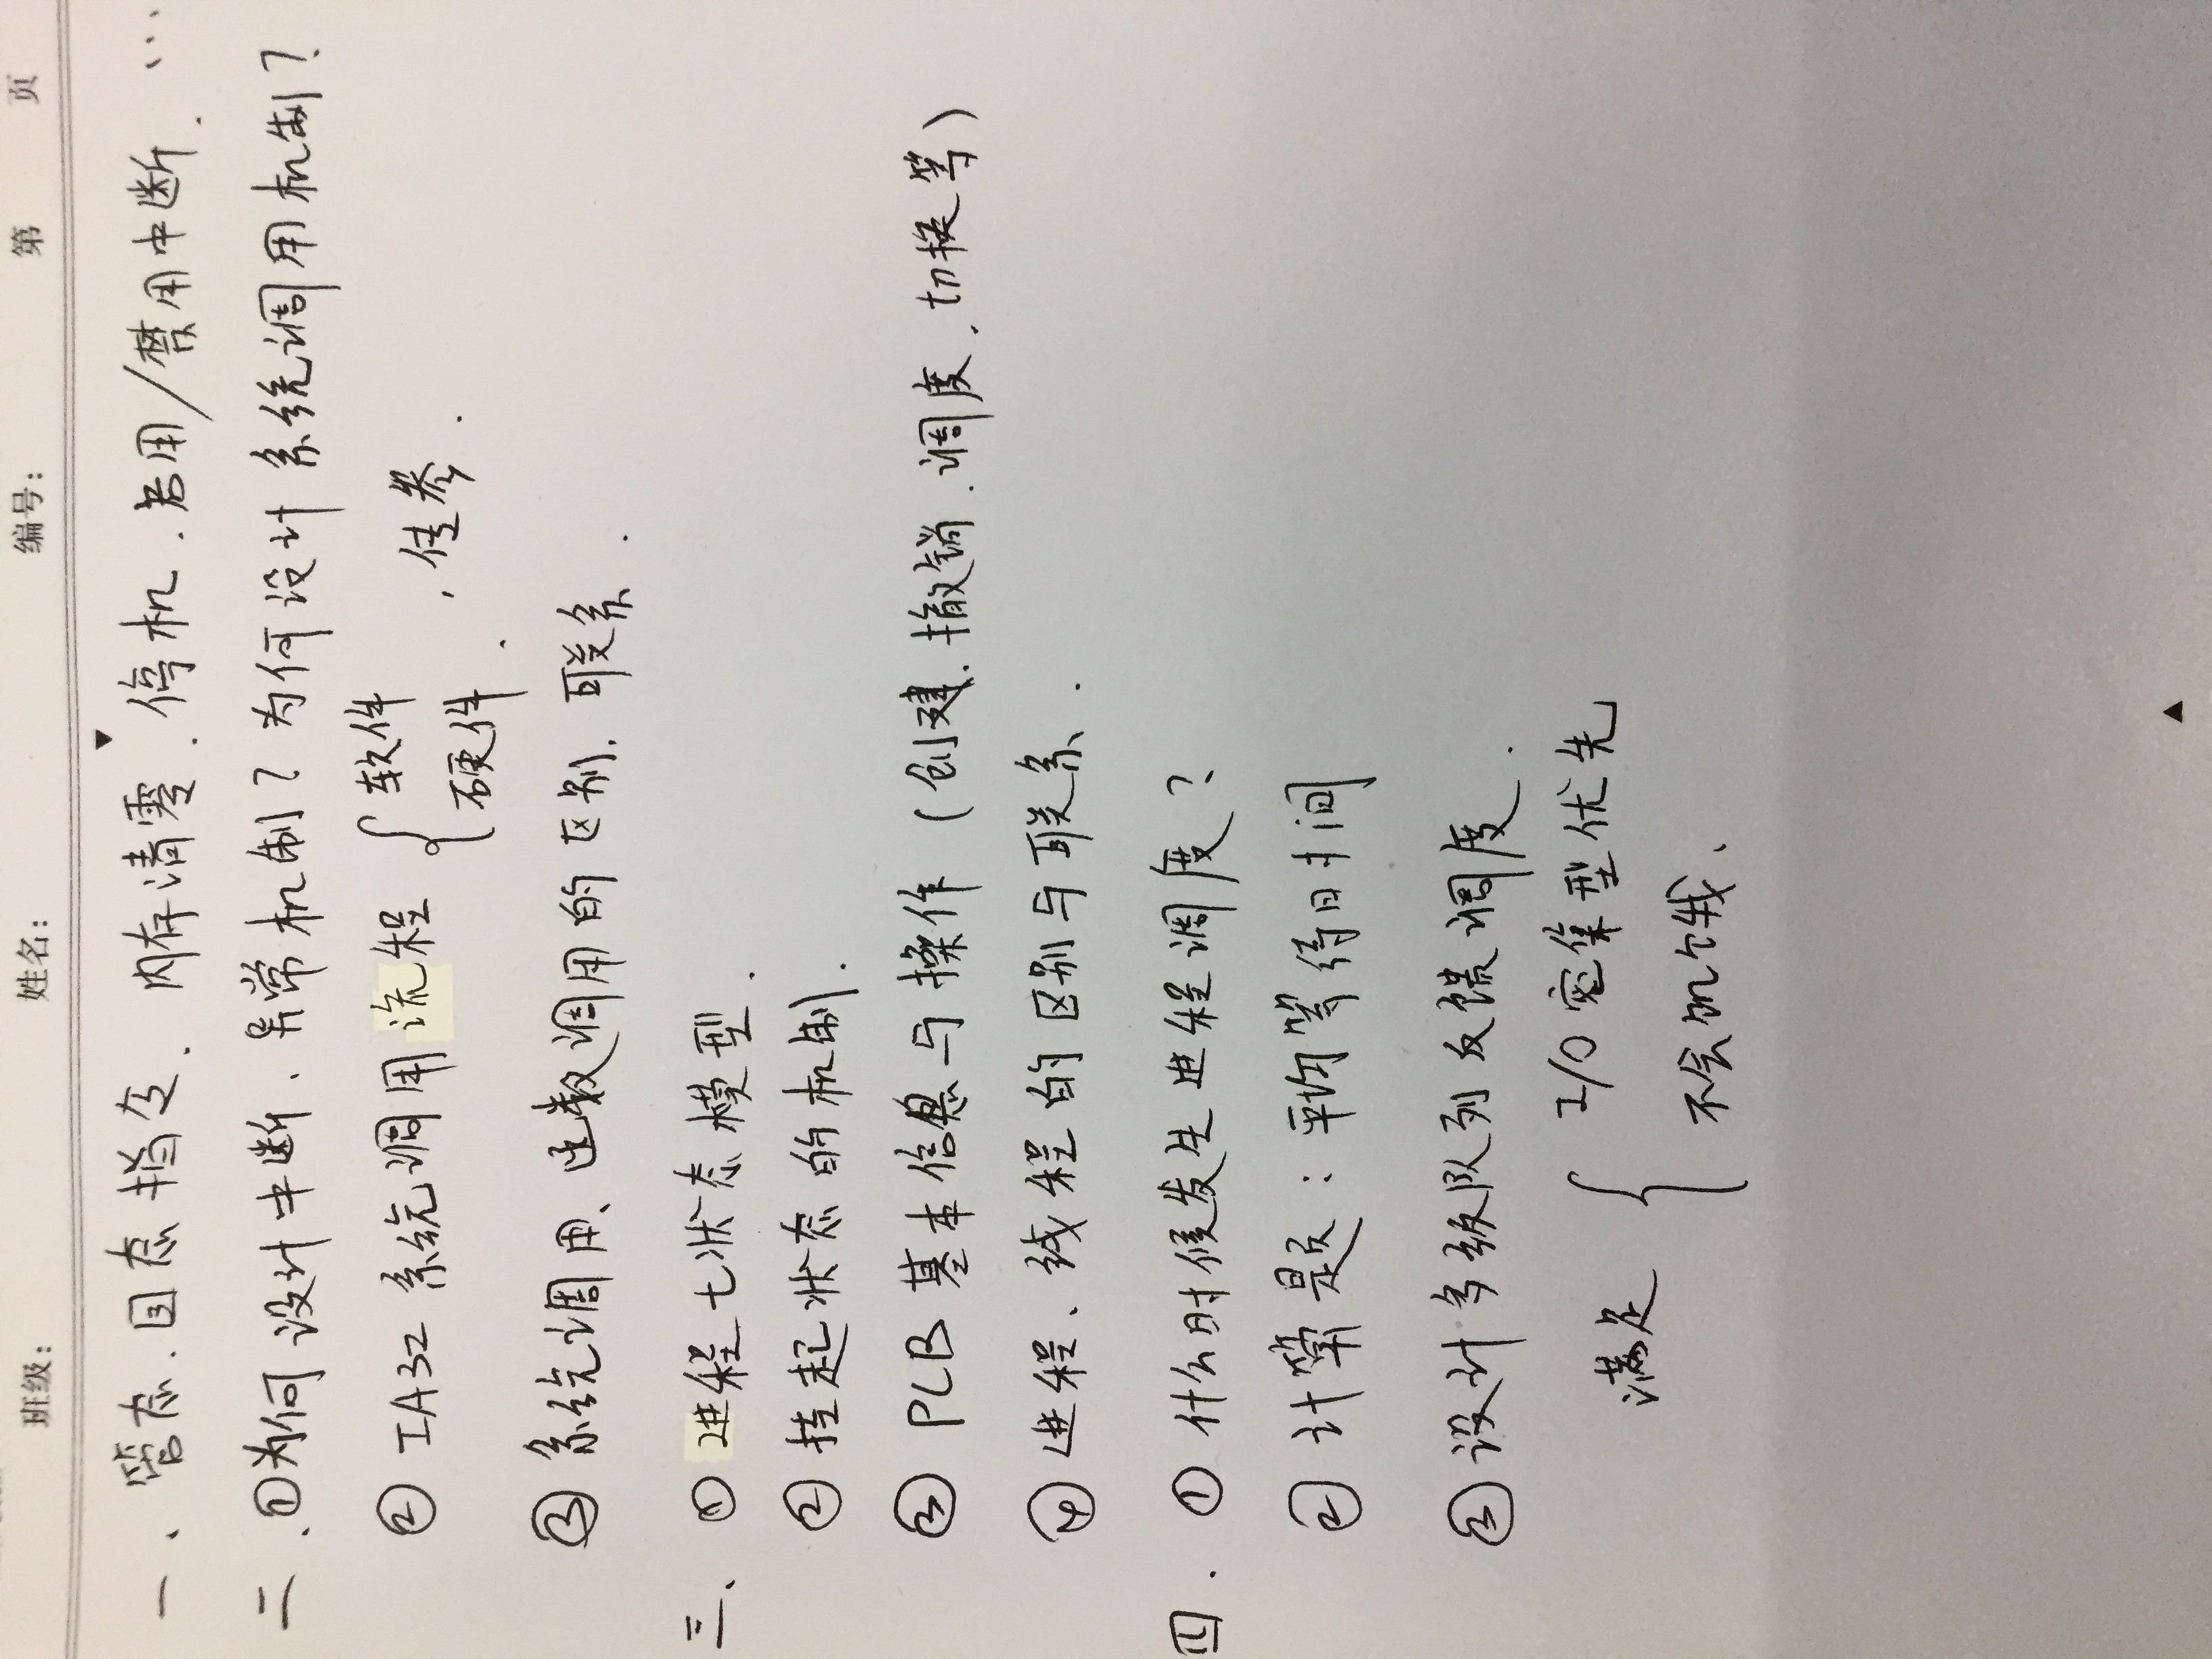 班级： 姓名： 编号： 第 页
一、管态、目态指令、内存清零、停机、启用/禁用中断、…
二、①为何设计中断、异常机制？为何设计系统调用机制？
② IA32 系统调用流程 { 软件 硬件 . , 传参.
③ 系统调用、函数调用的区别、联系.
三、① 进程七状态模型.
② 挂起状态的机制.
③ PCB 基本信息与操作（创建、撤销、调度、切换等）
④ 进程、线程的区别与联系.
四. ① 什么时候发生进程调度？
② 计算题：平均等待时间
③ 设计多级队列反馈调度.
满足 { I/O 密集型优先
不会饥饿、